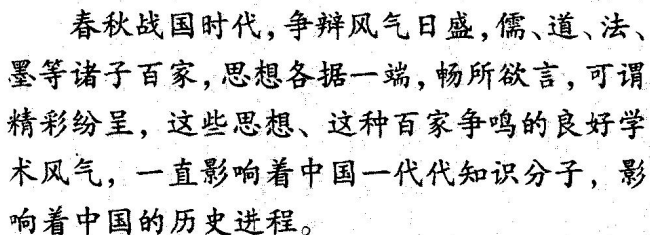 春秋战国时代，争辩风气日盛，儒、道、法、
墨等诸子百家，思想各据一端，畅所欲言，可谓
精彩纷呈，这些思想、这种百家争鸣的良好学
术风气，一直影响着中国一代代知识分子，影
响着中国的历史进程。